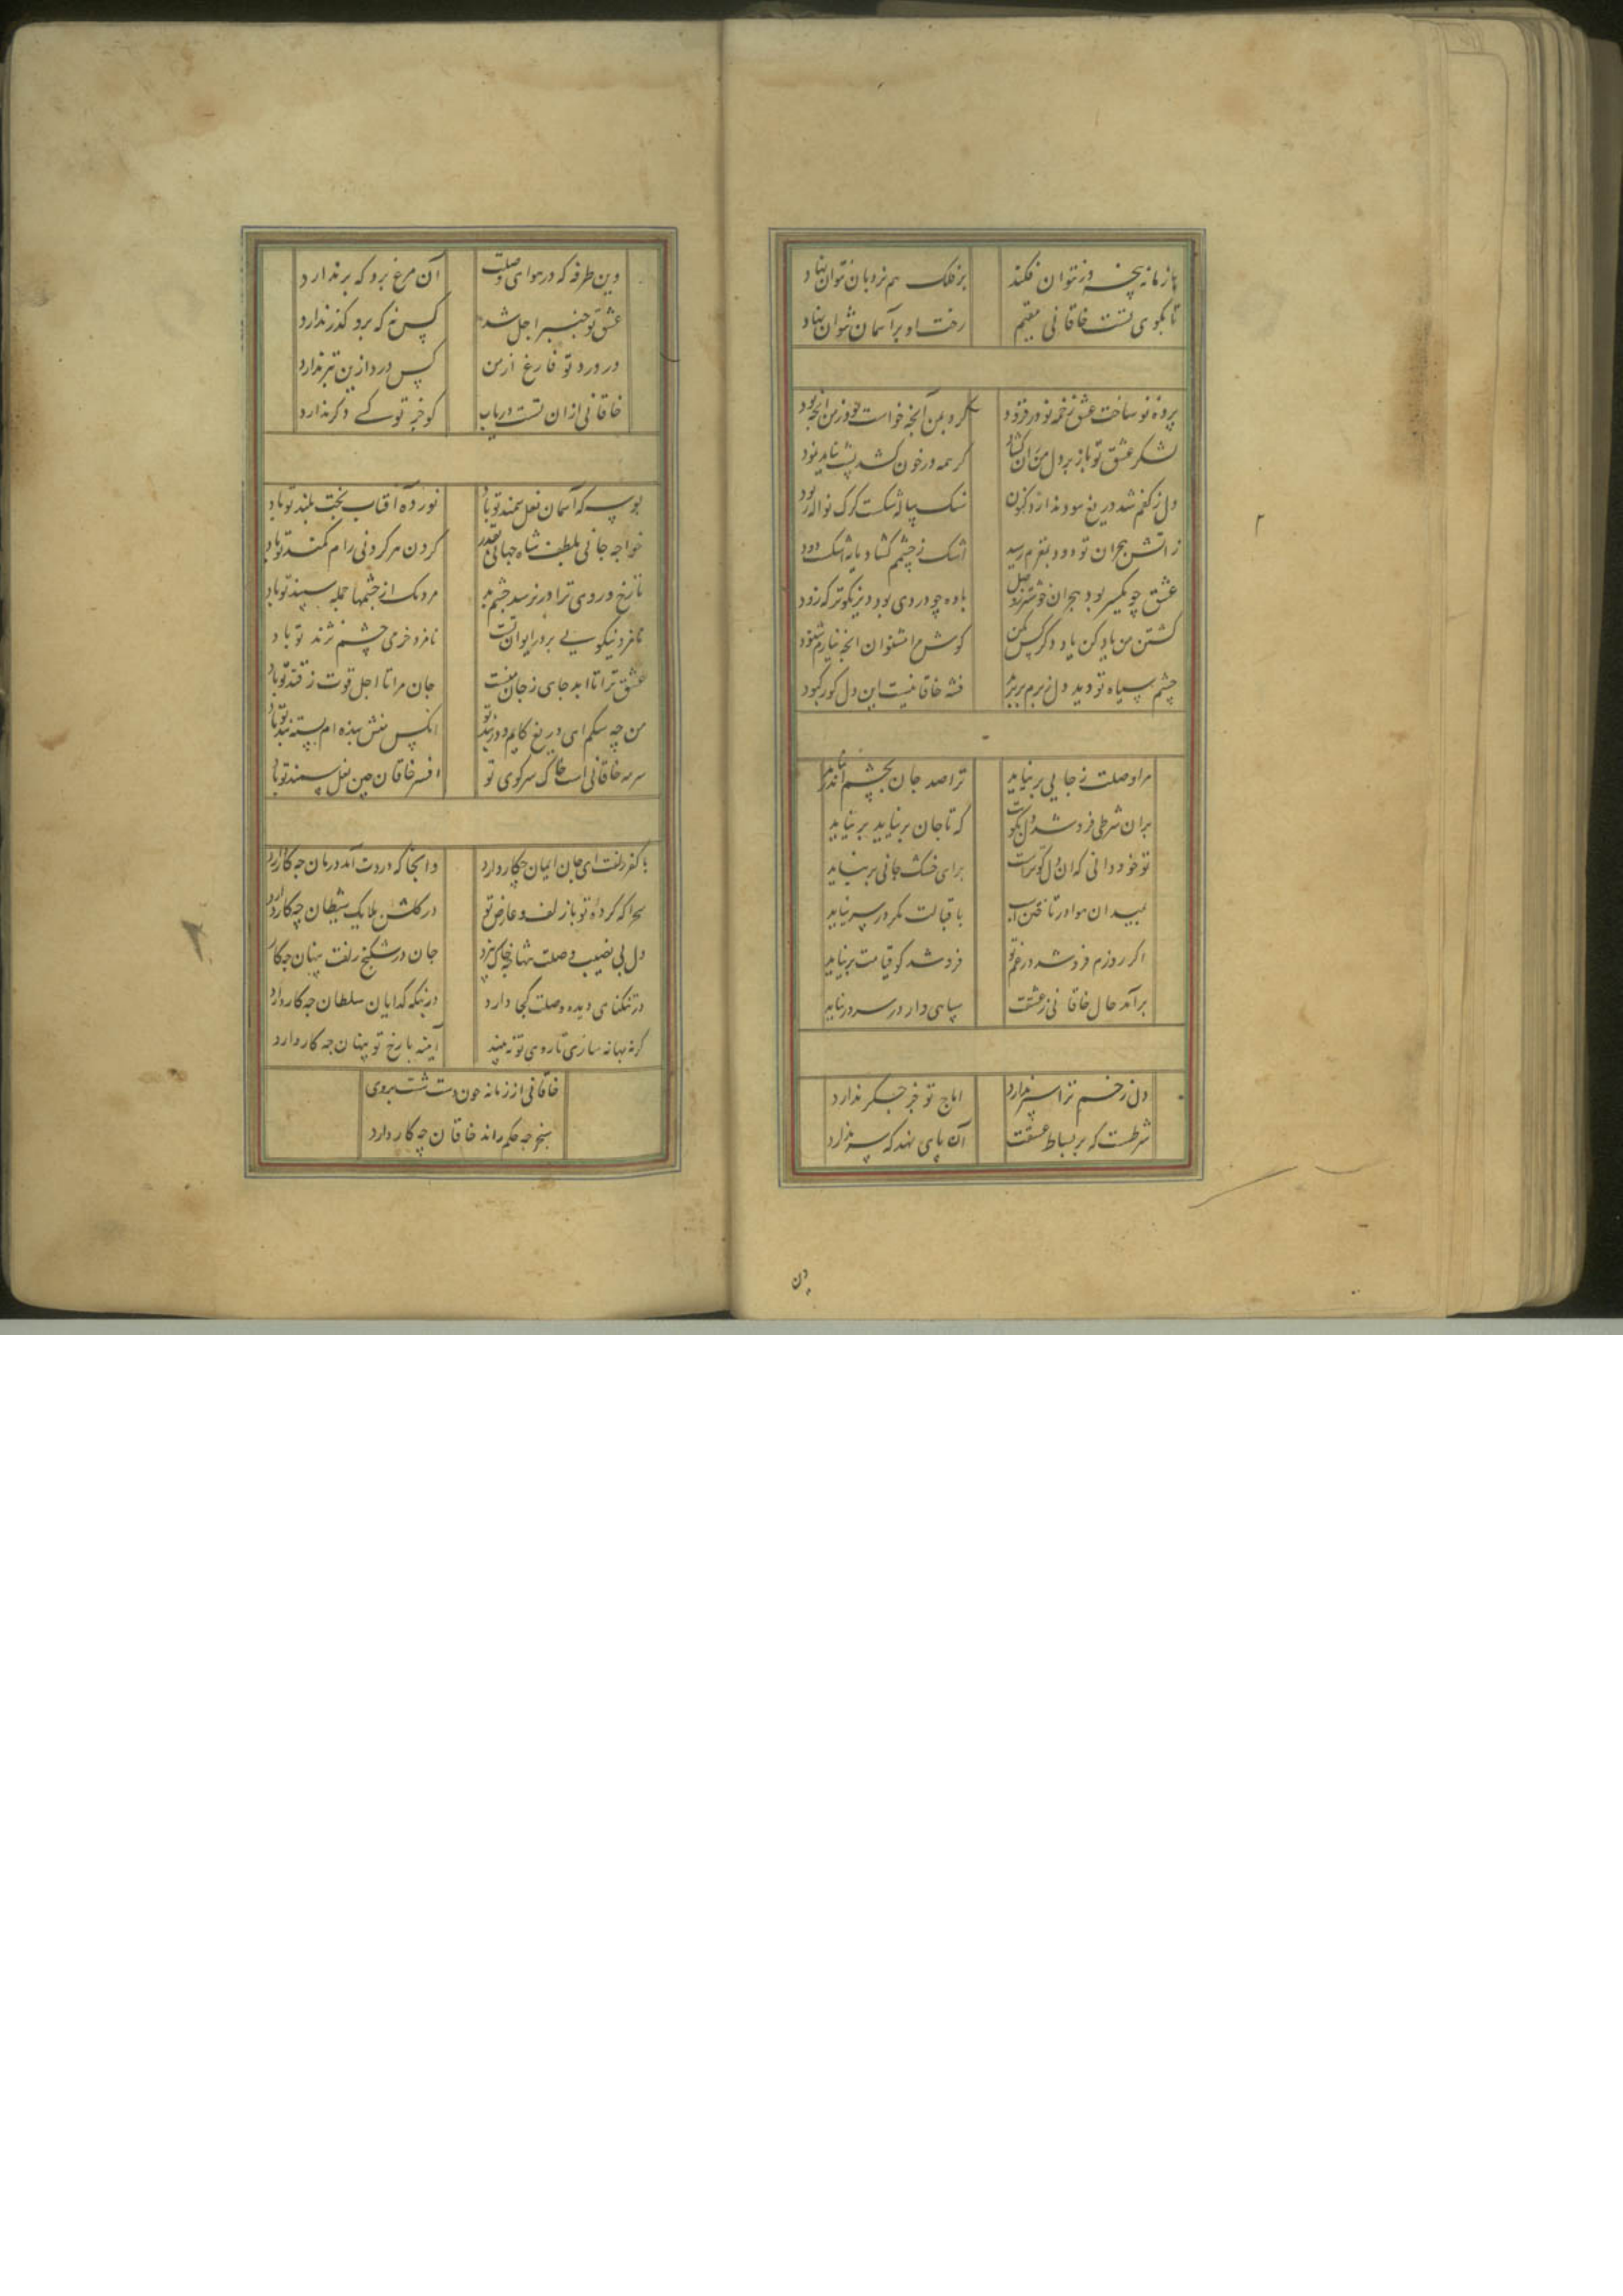 با زمانه پنجه در نتوان فکند بر فلک هم نردبان نتوان نهاد
تا بکوی تست خاقانی مقیم رخت او بر آسمان نتوان نهاد
پرده نو ساخت عشق زخمه نو در فزود کرد بمن آنچه خواست خود ز من آنچه بود
لشکر عشق تو باز بر دل من ران کشاد گر همه در خون کشد پشت نباید نمود
دل ز کفم شد دریغ سود ندارد کنون سنک پیاله شکست گرک نواله ربود
ز آتش هجران تو دود بمغزم رسید اشک ز چشمم کشاد مایه اشک دود
عشق چو یکسر بود هجران خوشتر ز وصل باده چو دردی بود دیر نکوتر که زود
کشتن من یاد کن یاد دکر کس مکن کوش مرا مشنوان آنچه نیارم شنود
چشم سیاه تو دید دل ز برم بر پرید فتنه خاقانیست این دل کور کبود
مرا وصلت ز جایی بر نیاید ترا صد جان بچشم اندر نیاید
بران شرطی فرو شد دل بکویت که تا جان بر نیاید بر نیاید
تو خود دانی که آن دل کو تراست برای خشک جانی بر نیاید
بمیدان هوا در تاختن اسب باقبالت مکر در سر نیاید
اکر روزم فرو شد در غم تو فرو شد کو قیامت بر نیاید
برآمد حال خاقانی ز عشقت سپاهی دار در سر در نیاید
دل زخم ترا سپر ندارد اماج تو جز جکر ندارد
شرطست که بر بساط عشقت آن پای نهد که سر ندارد
وین
وین طرفه که در هوای وصلت آن مرغ پرد که پر ندارد
عشق تو چنبر اجل شد کس نه که برو کذر ندارد
در درد تو فارغ از من کس درد ازین بتر ندارد
خاقانی ازان تست دریاب کو جز تو کسی دکر ندارد
بوسه که آسمان نعل سمند تو باد نور ده آفتاب بخت بلند تو باد
خواجه جانی بلطف شاه جهانی بقدر کردن هر کردنی رام کمند تو باد
تا رخ و روی ترا در نرسد چشم بد مردمک از چشمها جمله سپند تو باد
نامزد نیکویی بر در ایوان تست نامزد خرمی چشم نژند تو باد
عشق ترا تا ابد جای ز جان منست جان مرا تا اجل قوت ز قند تو باد
من چه سکم ای دریغ کایم در بند تو آنکس منش بنده ام بسته بند تو باد
سرمه خاقانی است خاک سر کوی تو افسر خاقان چین نعل سمند تو باد
با کفر زلفت ای جان ایمان چکار دارد وانجا که دردت آمد درمان چه کار دارد
سحرا که کرده تو با زلف و عارض تو در کلشن ملایک شیطان چه کار دارد
دل بی نصیب وصلت تنها بخاک برد جان در شکنج زلفت پنهان چه کار
در تنکنای دیده وصلت کجا دارد در بنکه کدایان سلطان چه کار دارد
کر نه بهانه سازی تا روی تو نه بیند آیینه با رخ تو پنهان چه کار دارد
خاقانی از زمانه چون دست شست بروی
سنجر چه حکم راند خاقان چه کار دارد